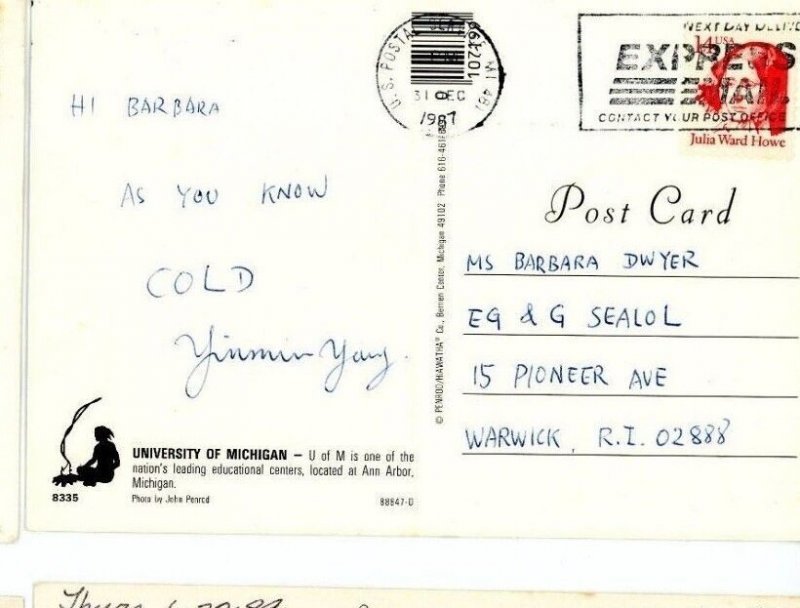 HI BARBARA
AS YOU KNOW
COLD
Yinmin Yang.
UNIVERSITY OF MICHIGAN – U of M is one of the
nation's leading educational centers, located at Ann Arbor,
Michigan.
8335
Photo by John Penrod
88847-D
© PENROD/HIAWATHA® Co., Berrien Center, Michigan 49102 Phone 616-461-
U.S. POSTAL
MI 48
31 DEC
1987
NEXT DAY
EXPRESS
MAIL
CONTACT YOUR POST OFFICE
14 USA
Julia Ward Howe
Post Card
MS BARBARA DWYER
EG & G SEALOL
15 PIONEER AVE
WARWICK, R.I. 02888